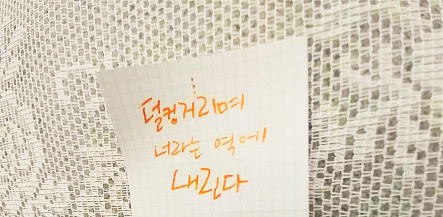 덜컹거리며
너라는 역에
내린다